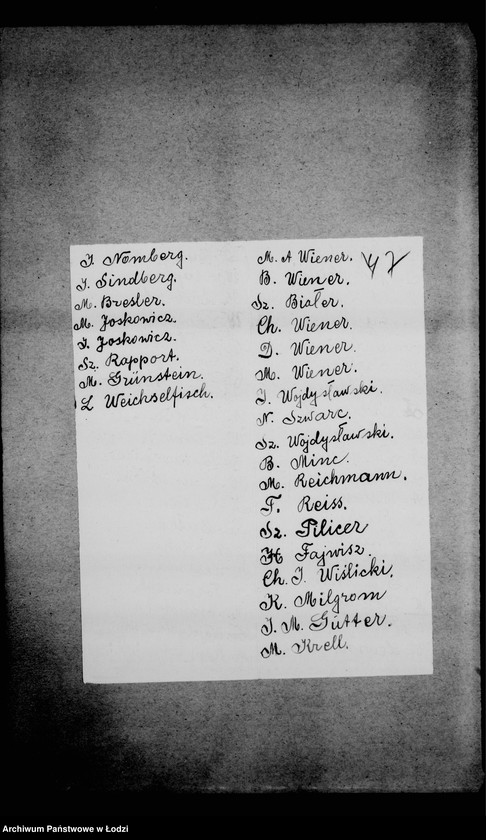 I Nomberg.
I. Sindberg.
M. Bresler.
M. Joskowicz.
I. Joskowicz.
Sz. Rapport.
M. Grünstein.
L Weichselfisch.
M. A Wiener.
47
B. Wiener.
Sz. Białer.
Ch. Wiener.
D. Wiener.
M. Wiener.
I. Wojdysławski.
N. Szwarc.
Sz. Wojdysławski.
B. Minc.
M. Reichmann.
F. Reiss.
Sz. Pilicer
H Fajwisz.
Ch. I. Wiślicki.
K. Milgrom
I. M. Gutter.
M. Krell.
Archiwum Państwowe w Łodzi